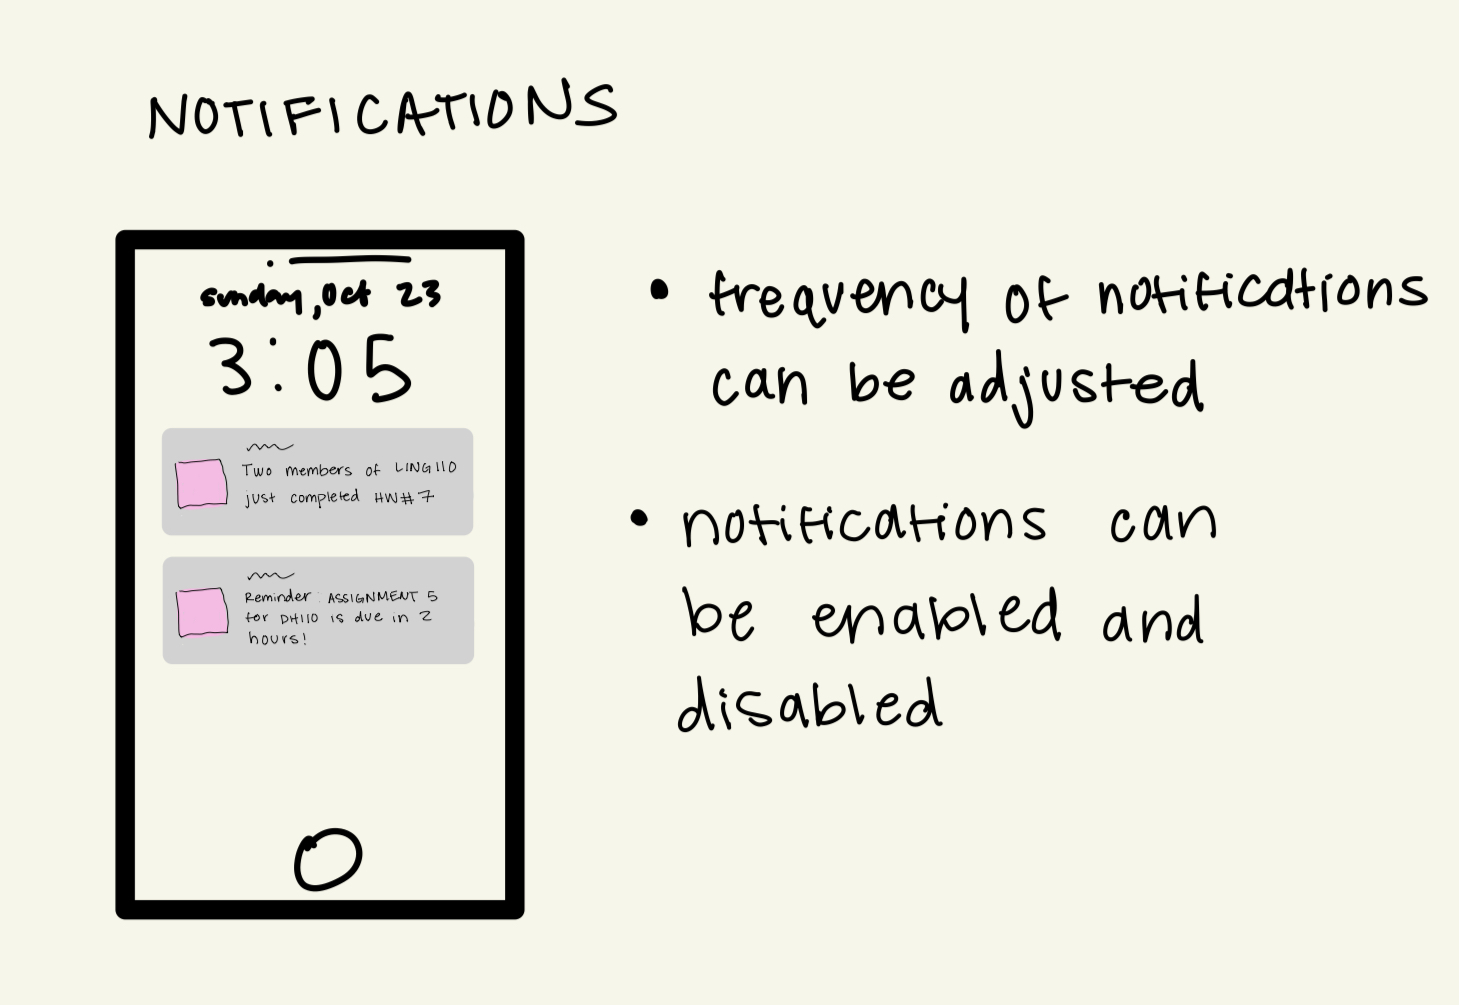 NOTIFICATIONS
sunday, Oct 23
3:05
Two members of LING110
just completed HW#7
Reminder: ASSIGNMENT 5
for DH110 is due in 2
hours!
• frequency of notifications
can be adjusted
• notifications can
be enabled and
disabled